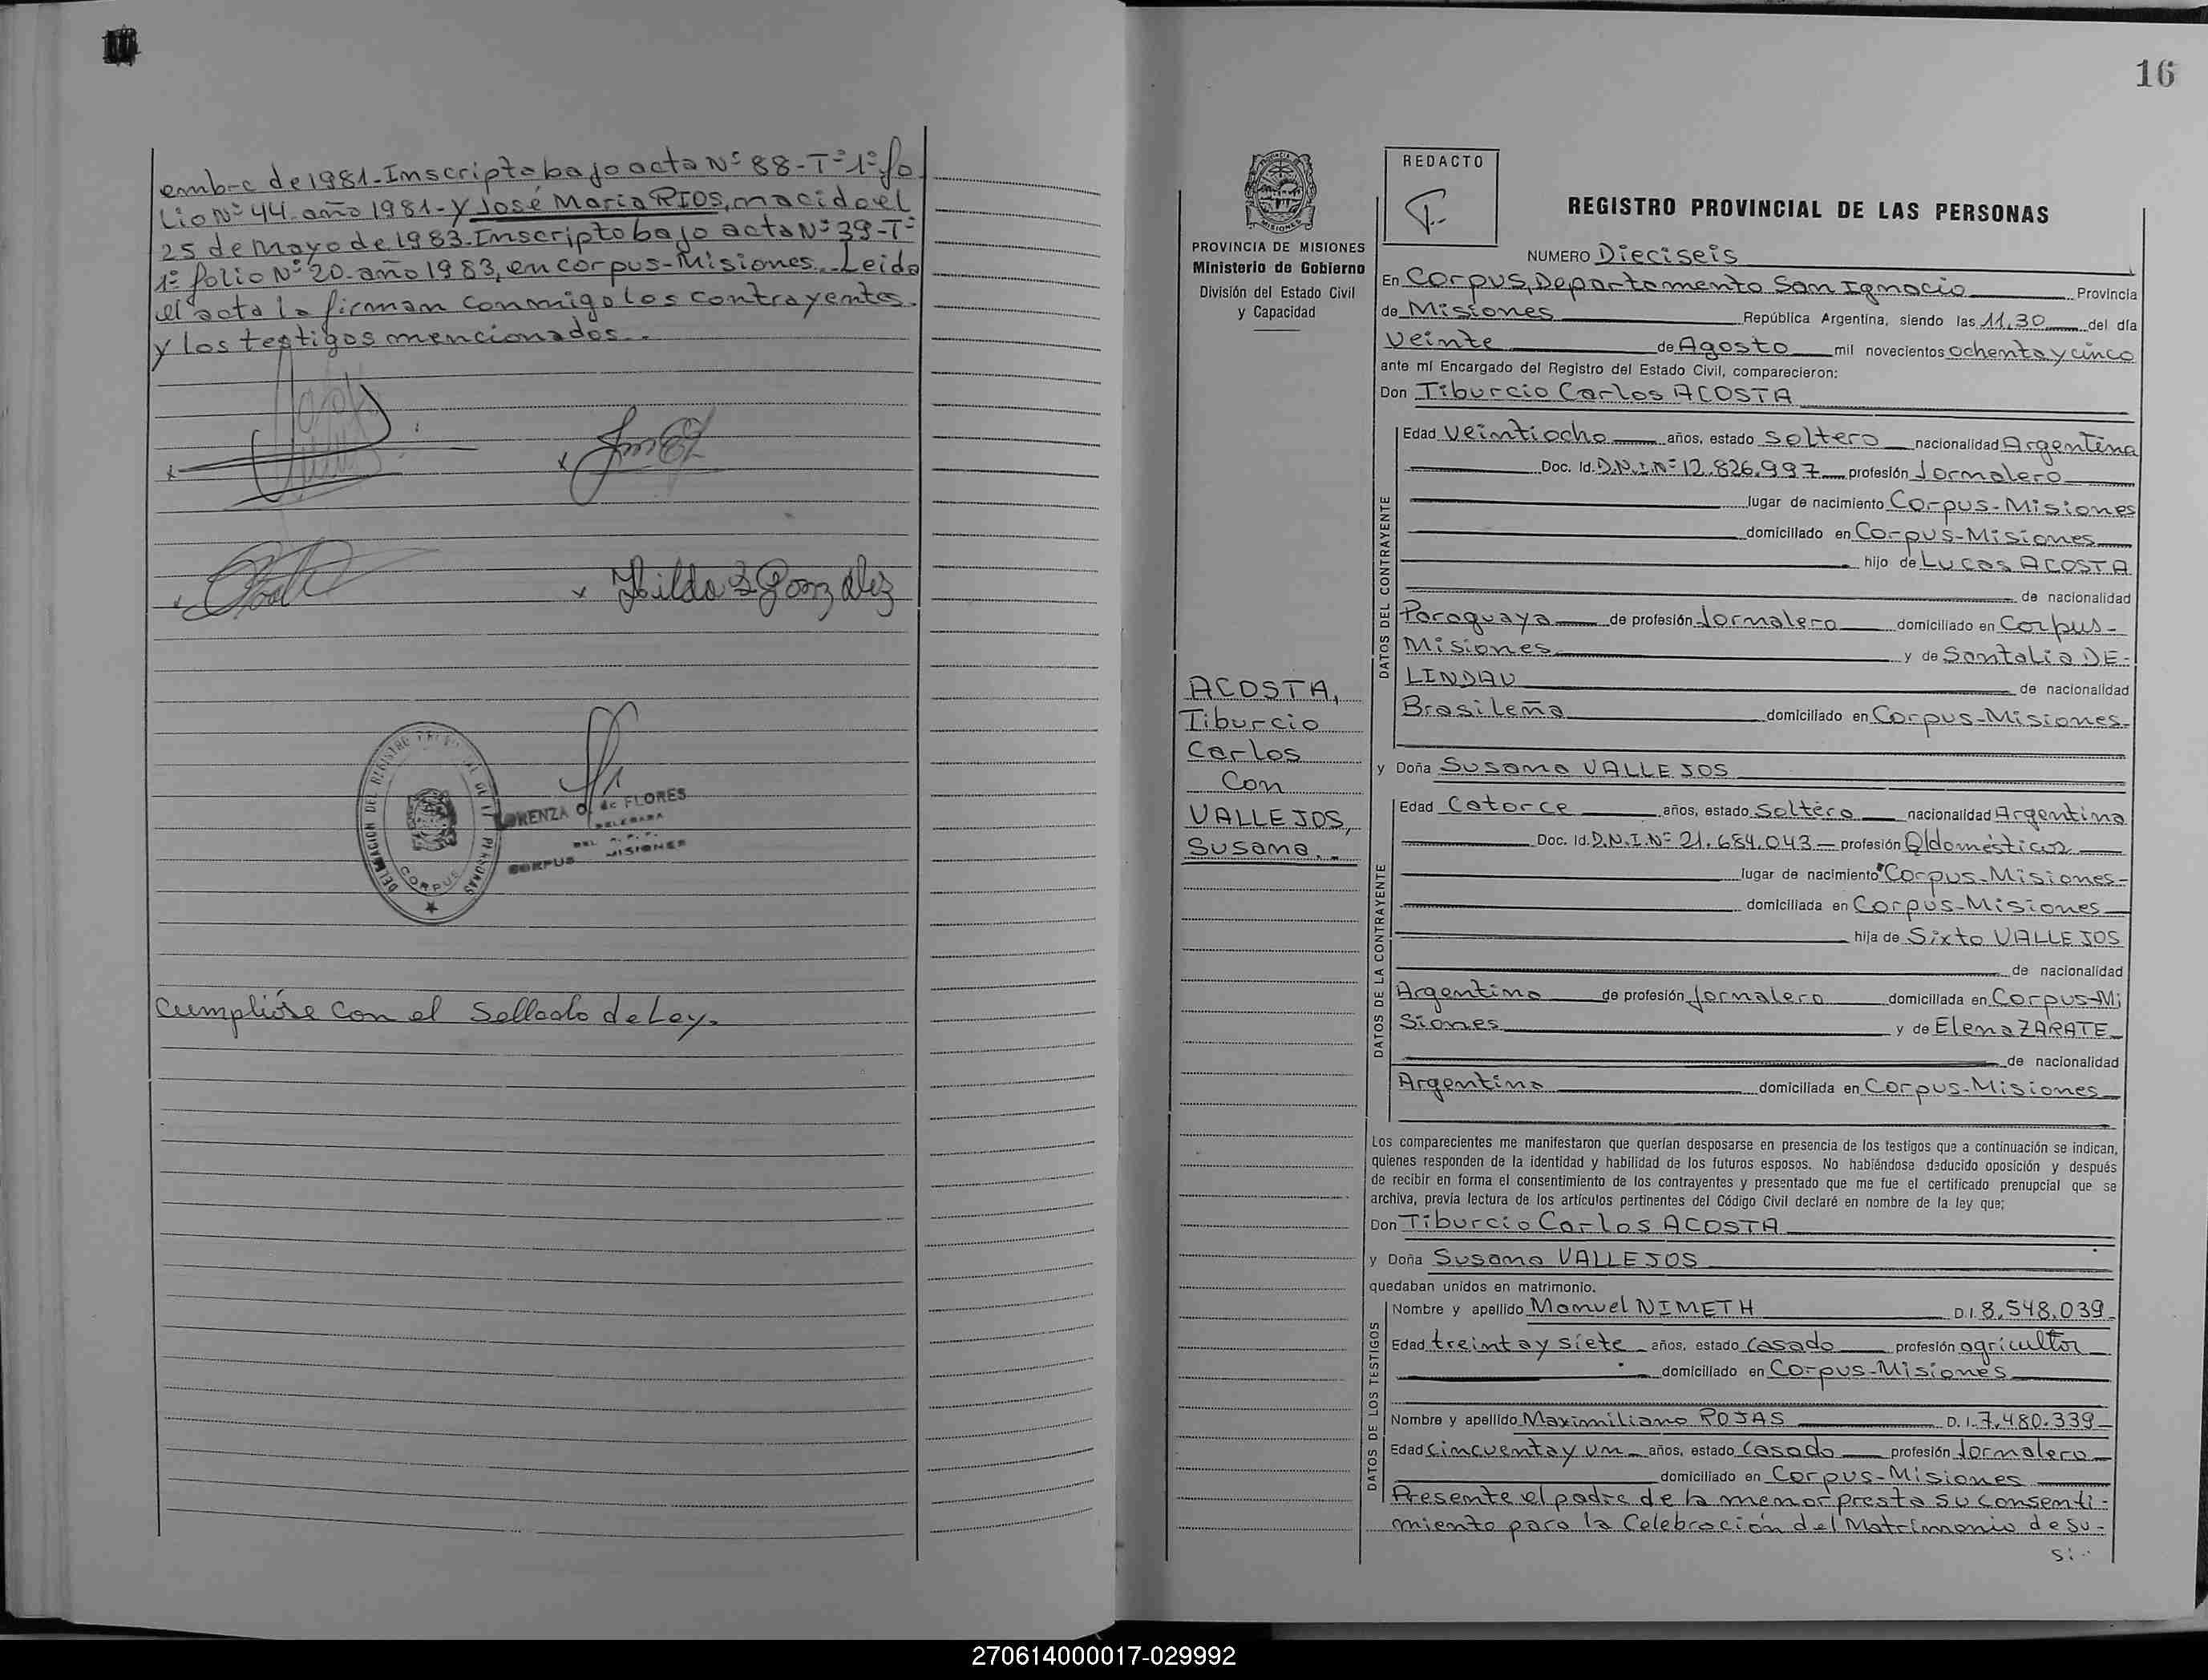 embre de 1981-Inscripto bajo acta Nº 88-Tº 1º fo
lio Nº 44-año 1981-y José María RIOS, nacido el
25 de Mayo de 1983. Inscripto bajo acta Nº 39-Tº
1º folio Nº 20-año 1983, en Corpus-Misiones.-Leida
el acta la firman conmigo los contrayentes.
y los testigos mencionados..
Hilda S Gonzalez
LORENZA O. de FLORES
DELEGADA
DEL R.P.P.
CORPUS MISIONES
DELEGACION DEL REGISTRO PROVINCIAL DE LAS PERSONAS
CORPUS
Cumplióse con el Sellado de Ley.
16
PROVINCIA DE MISIONES
Ministerio de Gobierno
División del Estado Civil
y Capacidad
REDACTO
REGISTRO PROVINCIAL DE LAS PERSONAS
NUMERO Dieciseis
En Corpus, Departamento San Ignacio Provincia
de Misiones República Argentina, siendo las 11,30 del día
Veinte de Agosto mil novecientos ochenta y cinco
ante mí Encargado del Registro del Estado Civil, comparecieron:
Don Tiburcio Carlos ACOSTA
DATOS DEL CONTRAYENTE
Edad Veintiocho años, estado soltero nacionalidad Argentina
Doc. Id. D.N.I. Nº 12.826.997 profesión Jornalero
lugar de nacimiento Corpus-Misiones
domiciliado en Corpus-Misiones
hijo de Lucas ACOSTA
de nacionalidad
Paraguaya de profesión Jornalero domiciliado en Corpus-
Misiones y de Santalia DE-
LINDAU de nacionalidad
Brasileña domiciliado en Corpus-Misiones-
ACOSTA,
Tiburcio
Carlos
Con
VALLEJOS,
Susana.-
y Doña Susana VALLEJOS
DATOS DE LA CONTRAYENTE
Edad Catorce años, estado Soltera nacionalidad Argentina
Doc. Id. D.N.I. Nº 21.684.043- profesión Q/domésticos
lugar de nacimiento Corpus-Misiones-
domiciliada en Corpus-Misiones
hija de Sixto VALLEJOS
de nacionalidad
Argentina de profesión Jornalero domiciliada en Corpus-Mi
siones y de Elena ZARATE
de nacionalidad
Argentina domiciliada en Corpus-Misiones
Los comparecientes me manifestaron que querían desposarse en presencia de los testigos que a continuación se indican,
quienes responden de la identidad y habilidad de los futuros esposos. No habiéndose deducido oposición y después
de recibir en forma el consentimiento de los contrayentes y presentado que me fue el certificado prenupcial que se
archiva, previa lectura de los artículos pertinentes del Código Civil declaré en nombre de la ley que;
Don Tiburcio Carlos ACOSTA
y Doña Susana VALLEJOS
quedaban unidos en matrimonio.
DATOS DE LOS TESTIGOS
Nombre y apellido Manuel NIMETH D.I. 8.548.039
Edad treinta y siete años, estado Casado profesión agricultor
domiciliado en Corpus-Misiones
Nombre y apellido Maximiliano ROJAS D.I. 7.480.339
Edad cincuenta y un años, estado Casado profesión Jornalero
domiciliado en Corpus-Misiones
Presente el padre de la menor presta su consenti-
miento para la Celebración del Matrimonio de su-
si..
270614000017-029992